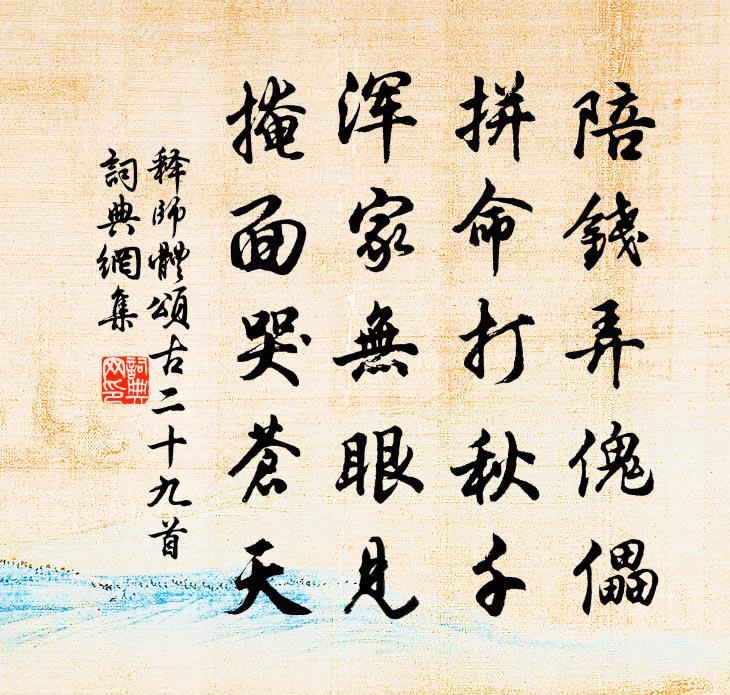 陪錢弄傀儡
拼命打秋千
渾家無眼見
掩面哭蒼天
释師體頌古二十九首
詞典網集
詞典
网印